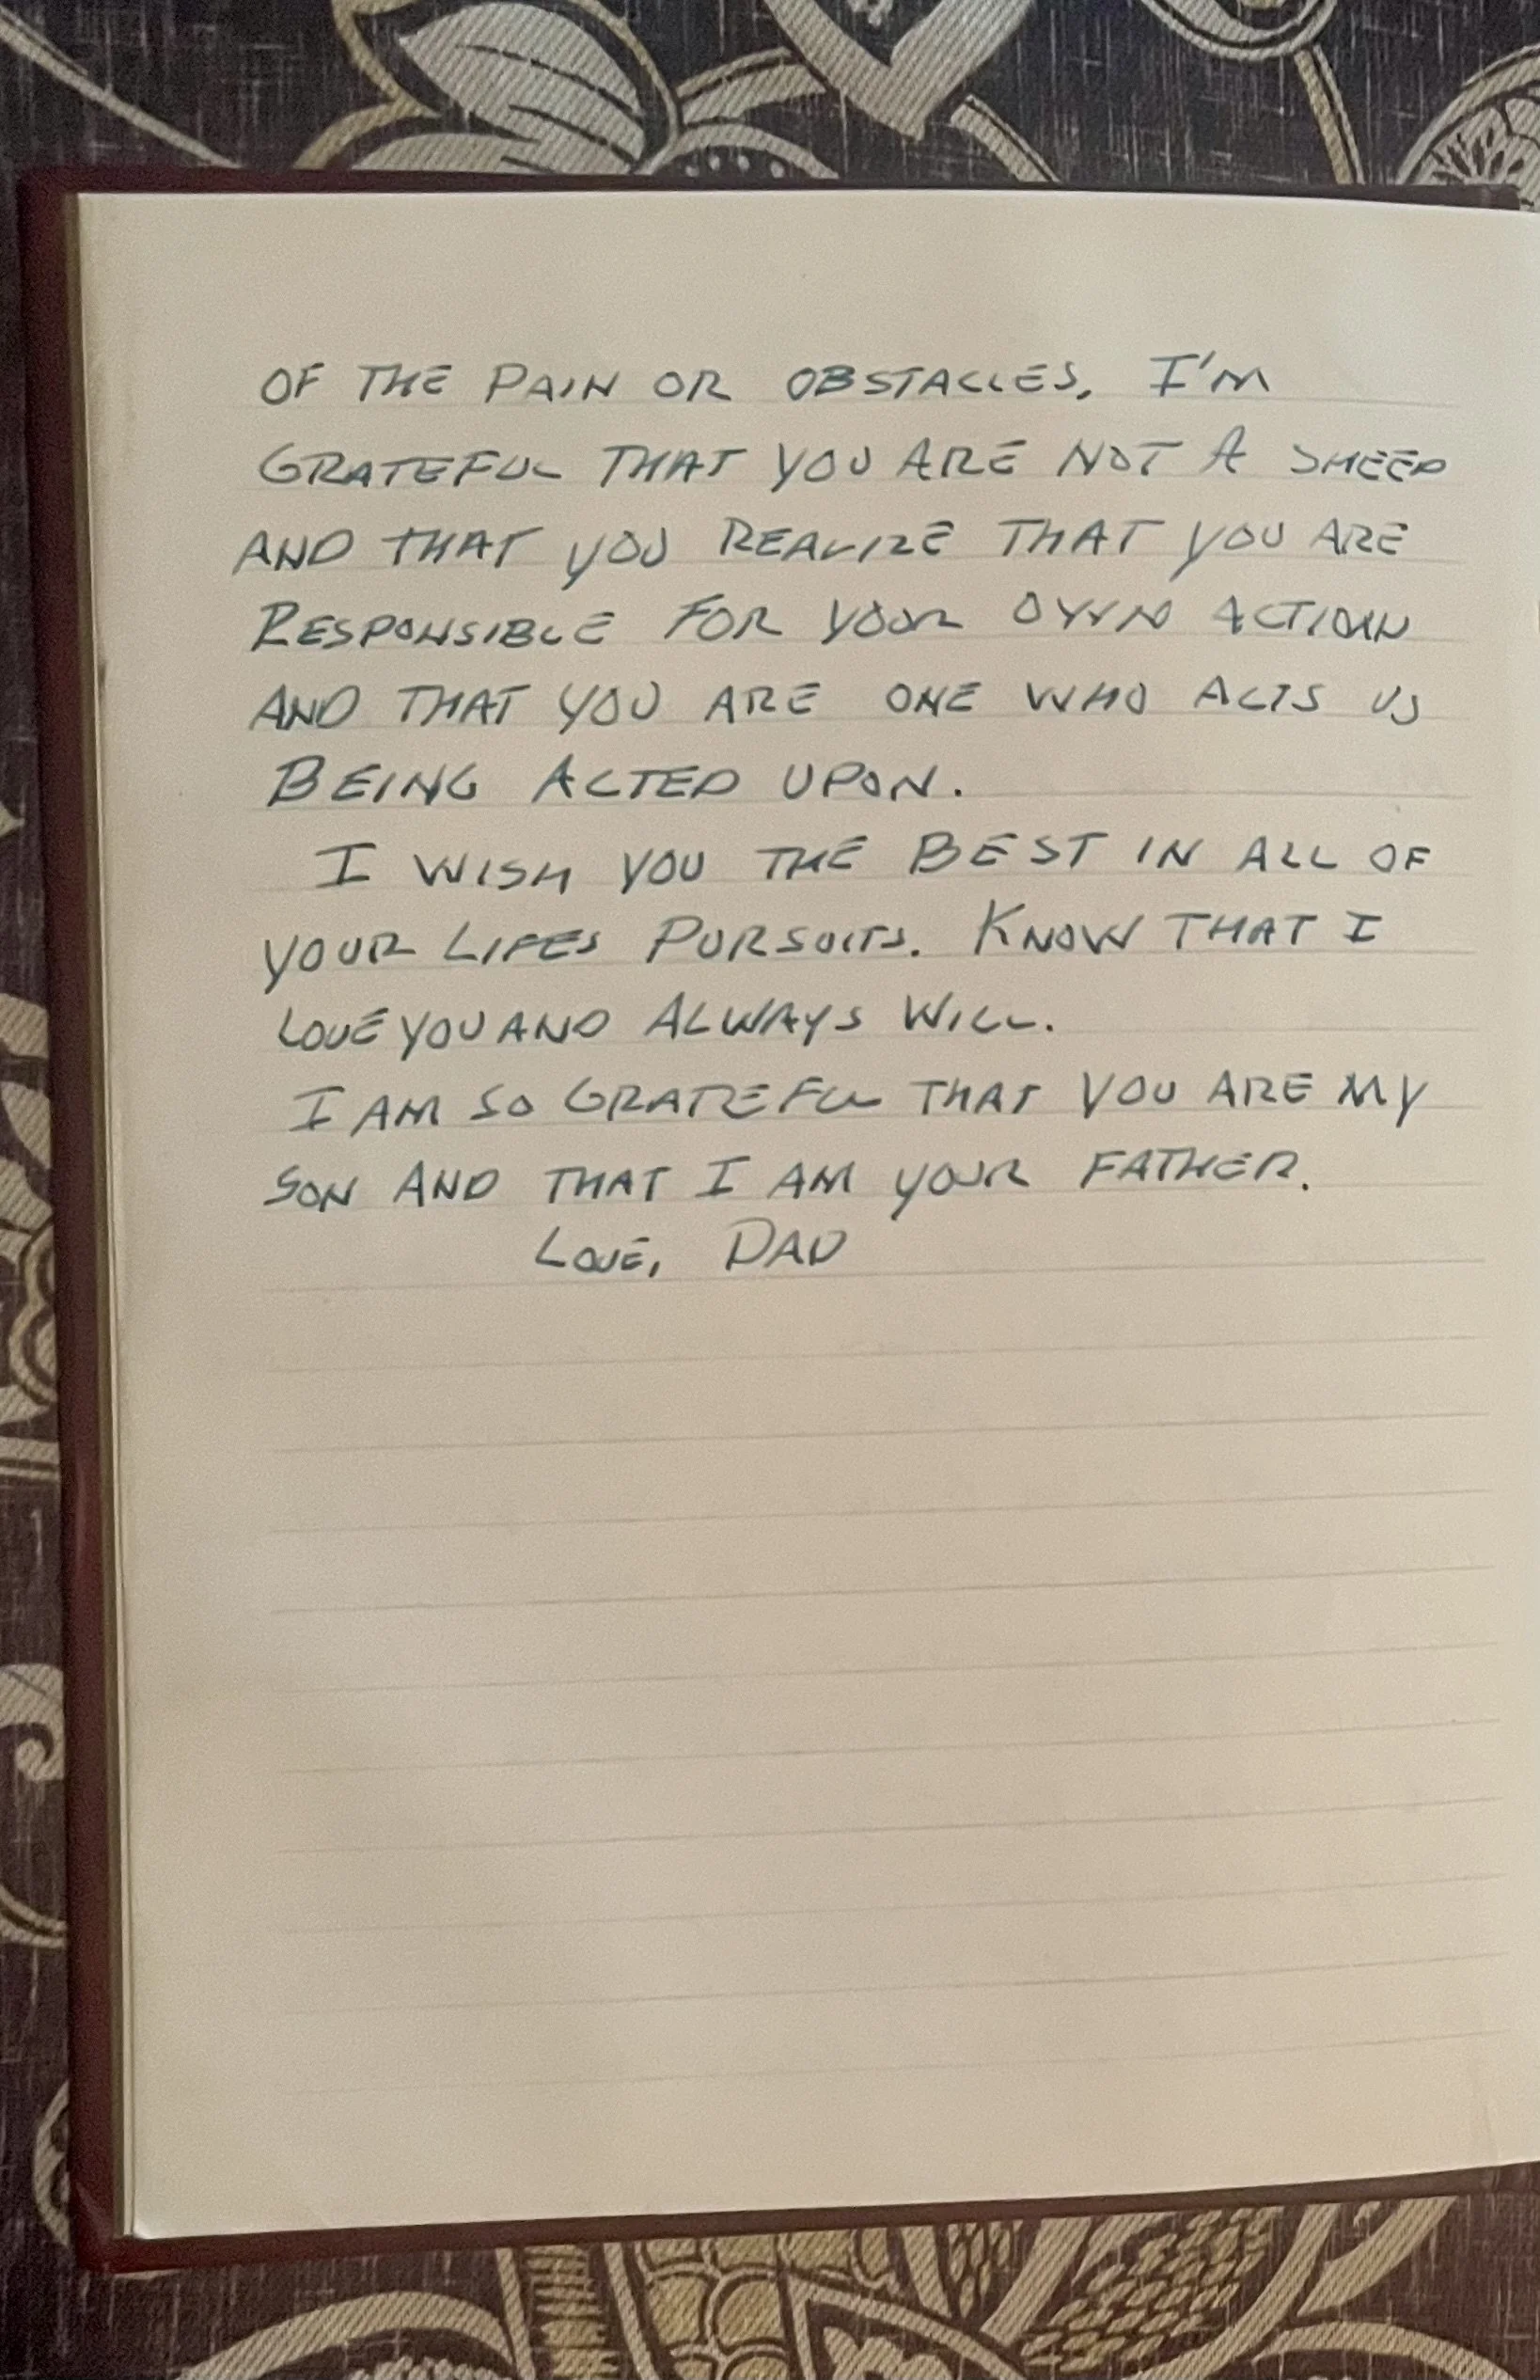 OF THE PAIN OR OBSTACLES. I'M
GRATEFUL THAT YOU ARE NOT A SHEEP
AND THAT YOU REALIZE THAT YOU ARE
RESPONSIBLE FOR YOUR OWN ACTION
AND THAT YOU ARE ONE WHO ACTS VS
BEING ACTED UPON.
I WISH YOU THE BEST IN ALL OF
YOUR LIFES PURSUITS. KNOW THAT I
LOVE YOU AND ALWAYS WILL.
I AM SO GRATEFUL THAT YOU ARE MY
SON AND THAT I AM YOUR FATHER.
LOVE, DAD